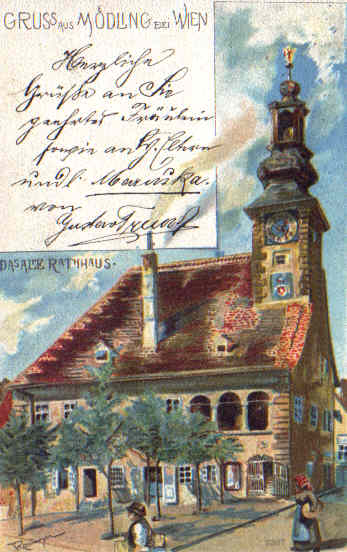 GRUSS AUS MÖDLING BEI WIEN
Herzliche
Grüße an Sie
geehrtes Fräulein
sowie an H. Eltern
und l. Maruska.
von
Gustav
DAS ALTE RATHHAUS.